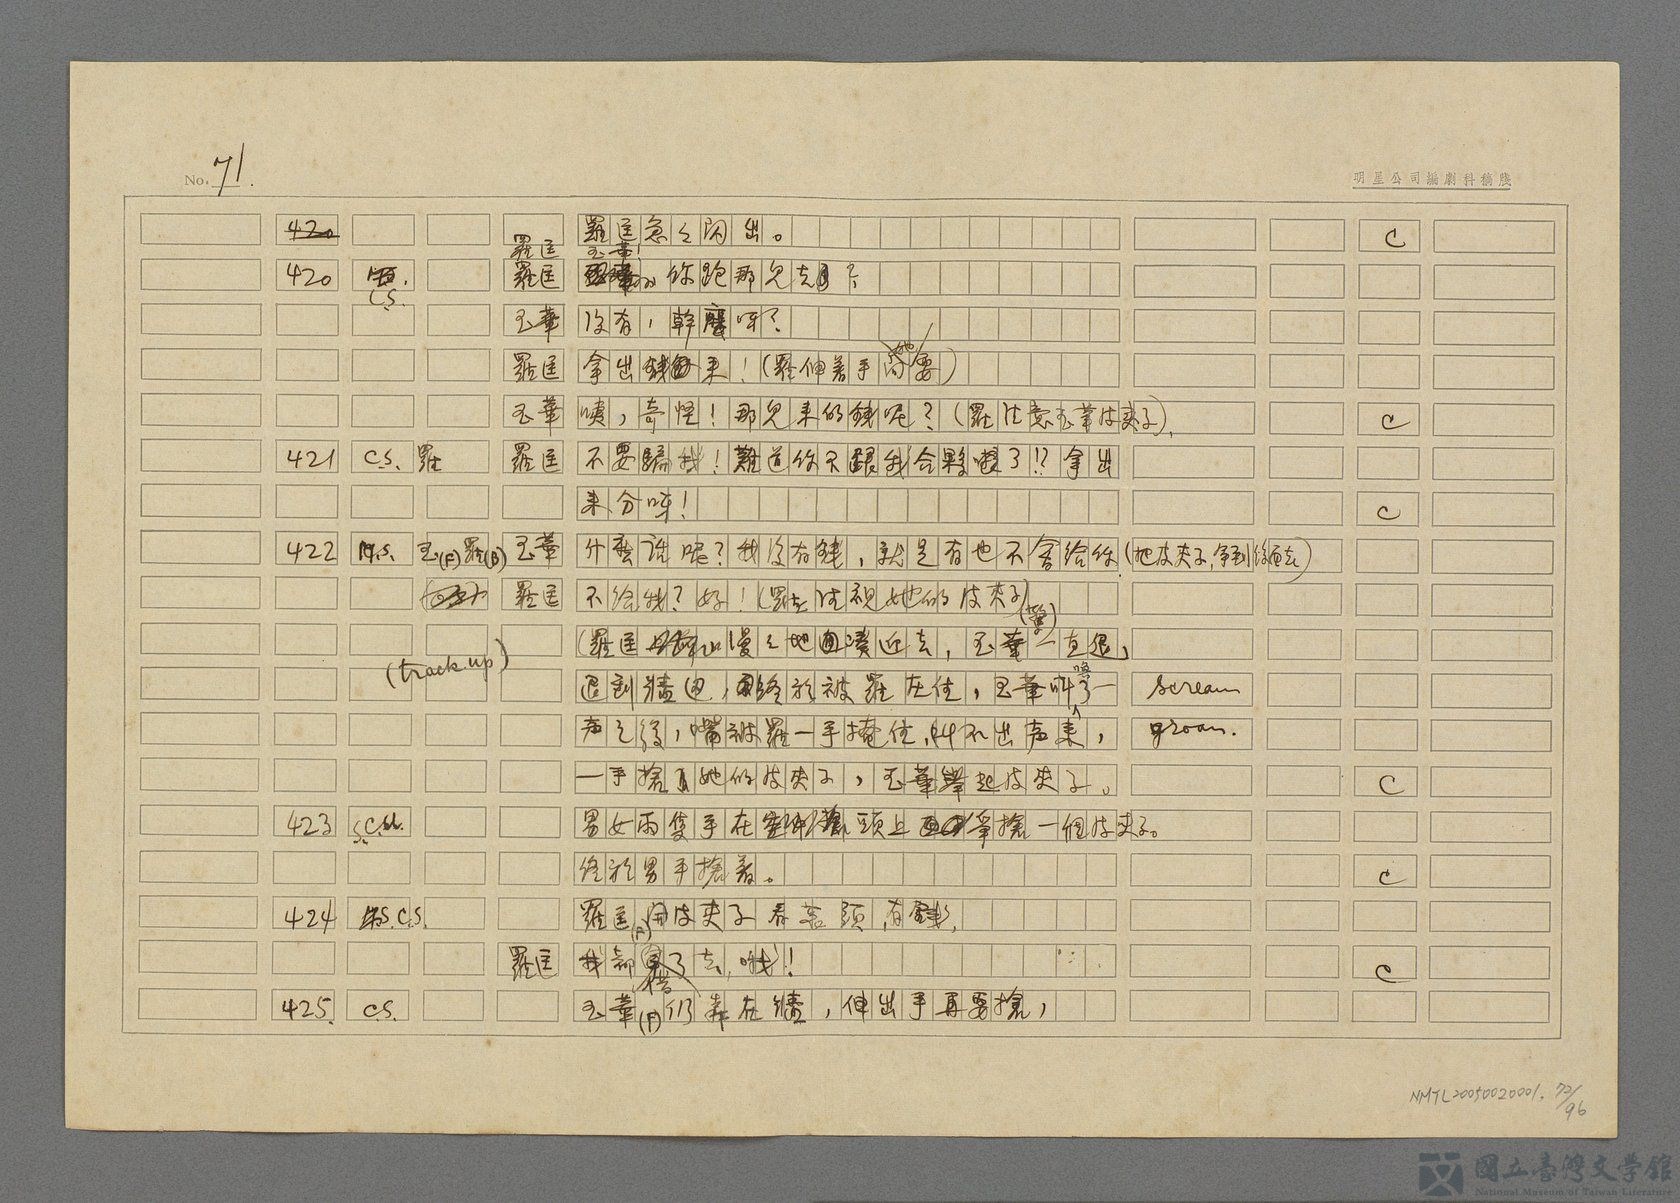 No. 71.
明星公司編劇科稿牋
420 羅匡急々閃出。 C
羅匡 玉華!
420 C.S. 羅匡 你跑那兒去?
玉華 沒有,幹麼呀?
羅匡 拿出錢來!(羅伸着手向她要)
玉華 咦,奇怪!那兒來的錢呢?(羅注意玉華皮夾子) C
421 C.S. 羅 羅匡 不要騙我!難道你不跟我合夥嗎了!?拿出
來分呀! C
422 M.S. 玉(F)羅(B) 玉華 什麼話呢?我沒有錢,就是有也不會給你(她皮夾子
羅匡 不給我?好!(羅匡注視她的皮夾子)
(羅匡慢々地湊近去,玉華(驚)一直退,
(track up) 退到牆邊,終於被羅 住,玉華叫喚了一 scream
声之後,嘴被羅一手掩住,叫不出声來, groan.
一手搶她的皮夾子,玉華舉起皮夾子。 C
423 S.C.U. 男女兩隻手在頭上爭搶一個皮夾子。
終於男手搶着。 C
424 C.S. 羅匡(A)開皮夾子看裏頭,有錢,
羅匡 我都借了去,哦! C
425. C.S. 玉華(F)仍靠在牆,伸出手再要搶,
NMTL20050020001. 72/96
國立臺灣文學館
National Museum of Taiwan Literature